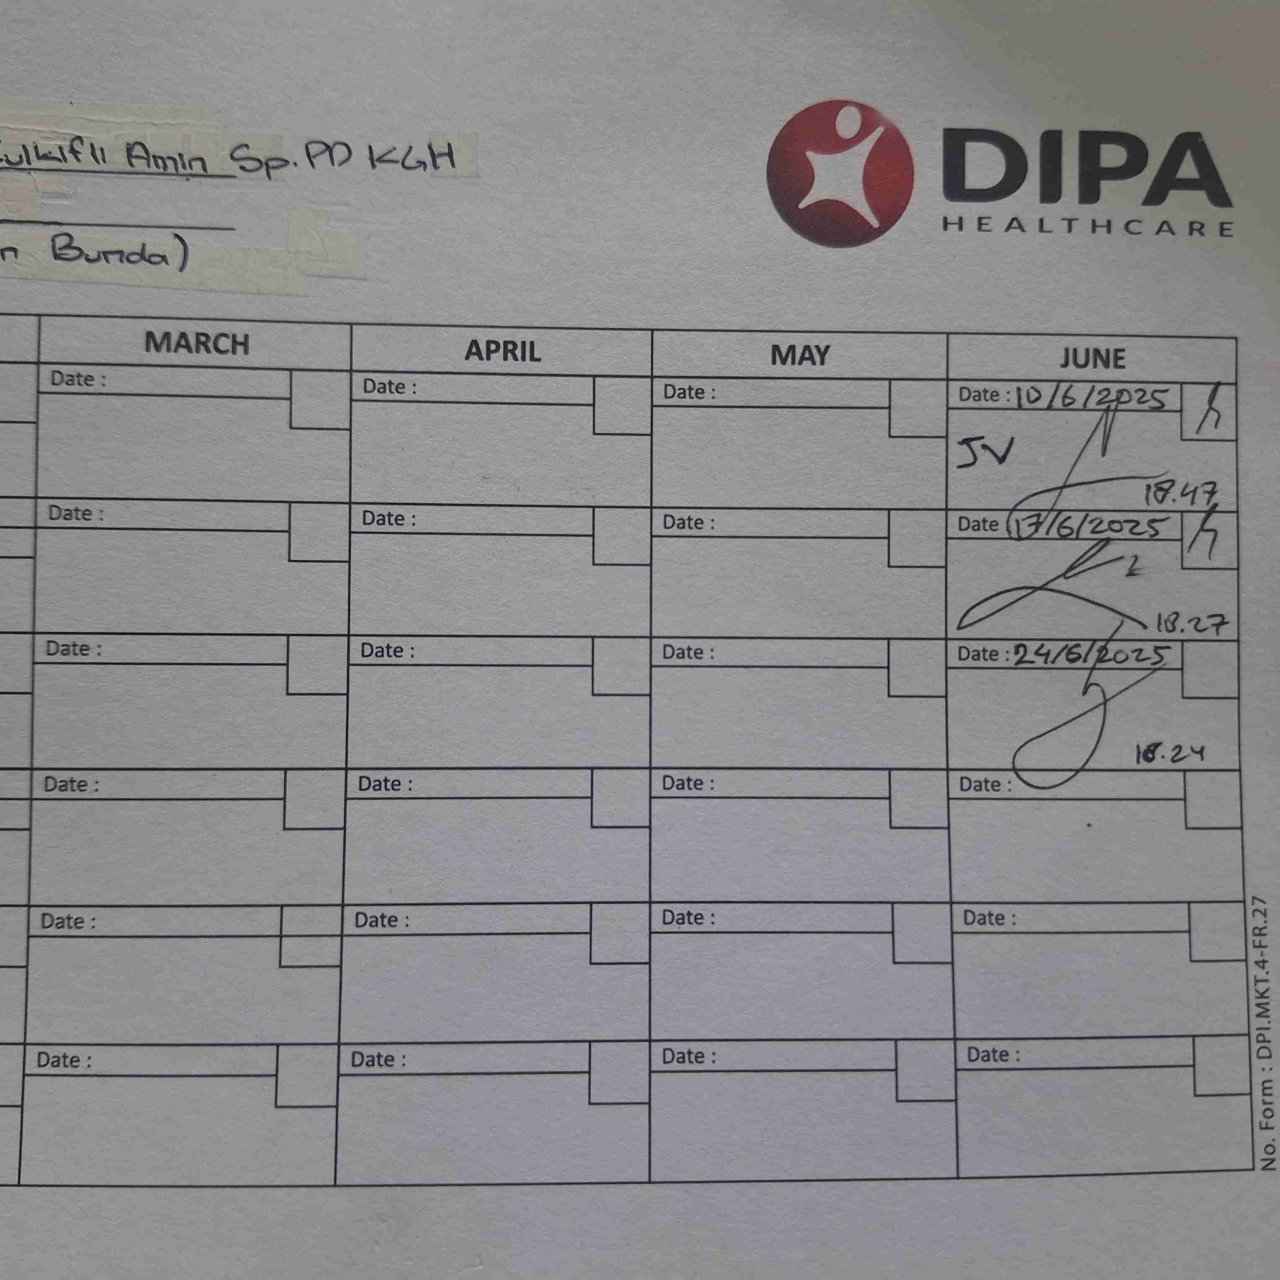 Zulkifli Amin Sp.PD KGH
n Bunda)
DIPA
HEALTHCARE
MARCH APRIL MAY JUNE
Date : Date : Date : Date : 10/6/2025
JV
18.47
Date : Date : Date : Date 17/6/2025
18.27
Date : Date : Date : Date : 24/6/2025
18.24
Date : Date : Date : Date :
Date : Date : Date : Date :
Date : Date : Date : Date :
No. Form : DPI.MKT.4-FR.27